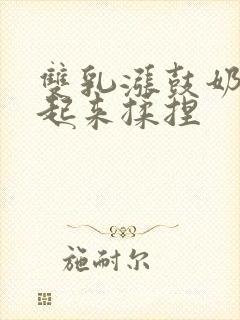 雙乳漲鼓奶
起来揉捏
施耐尔